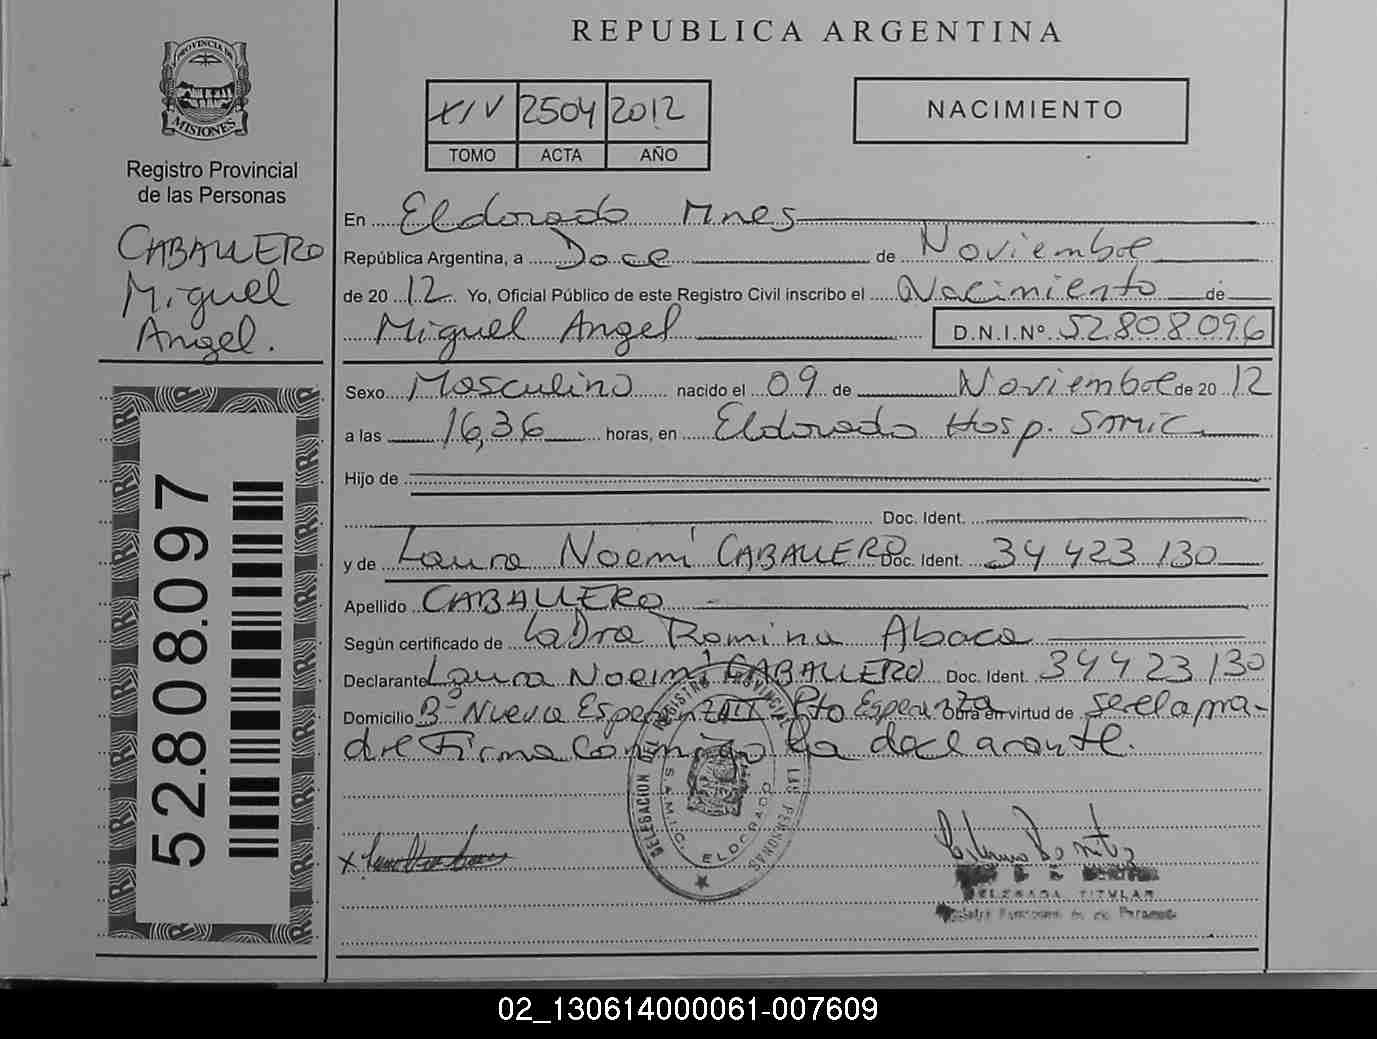 REPUBLICA ARGENTINA
PROVINCIA DE
MISIONES
Registro Provincial
de las Personas
CABALLERO
Miguel
Angel.
52.808.097
XIV 2504 2012
TOMO ACTA AÑO
NACIMIENTO
En Eldorado Mnes
República Argentina, a Doce de Noviembre
de 20 12 Yo, Oficial Público de este Registro Civil inscribo el Nacimiento de
Miguel Angel D.N.I.Nº 52808096
Sexo Masculino nacido el 09 de Noviembre de 20 12
a las 16,36 horas, en Eldorado Hosp. SAMIC
Hijo de
Doc. Ident.
y de Laura Noemí CABALLERO Doc. Ident. 34 423 130
Apellido CABALLERO
Según certificado de la Dra Romina Abaca
Declarante Laura Noemí CABALLERO Doc. Ident. 34 423 130
Domicilio Bº Nueva Esperanza II Pto Esperanza Obra en virtud de ser la ma-
dre Firma Conmigo la declarante.
DELEGACION DEL REGISTRO PROVINCIAL LAS PERSONAS
S.A.M.I.C. ELDORADO
DELEGADA TITULAR
02_130614000061-007609